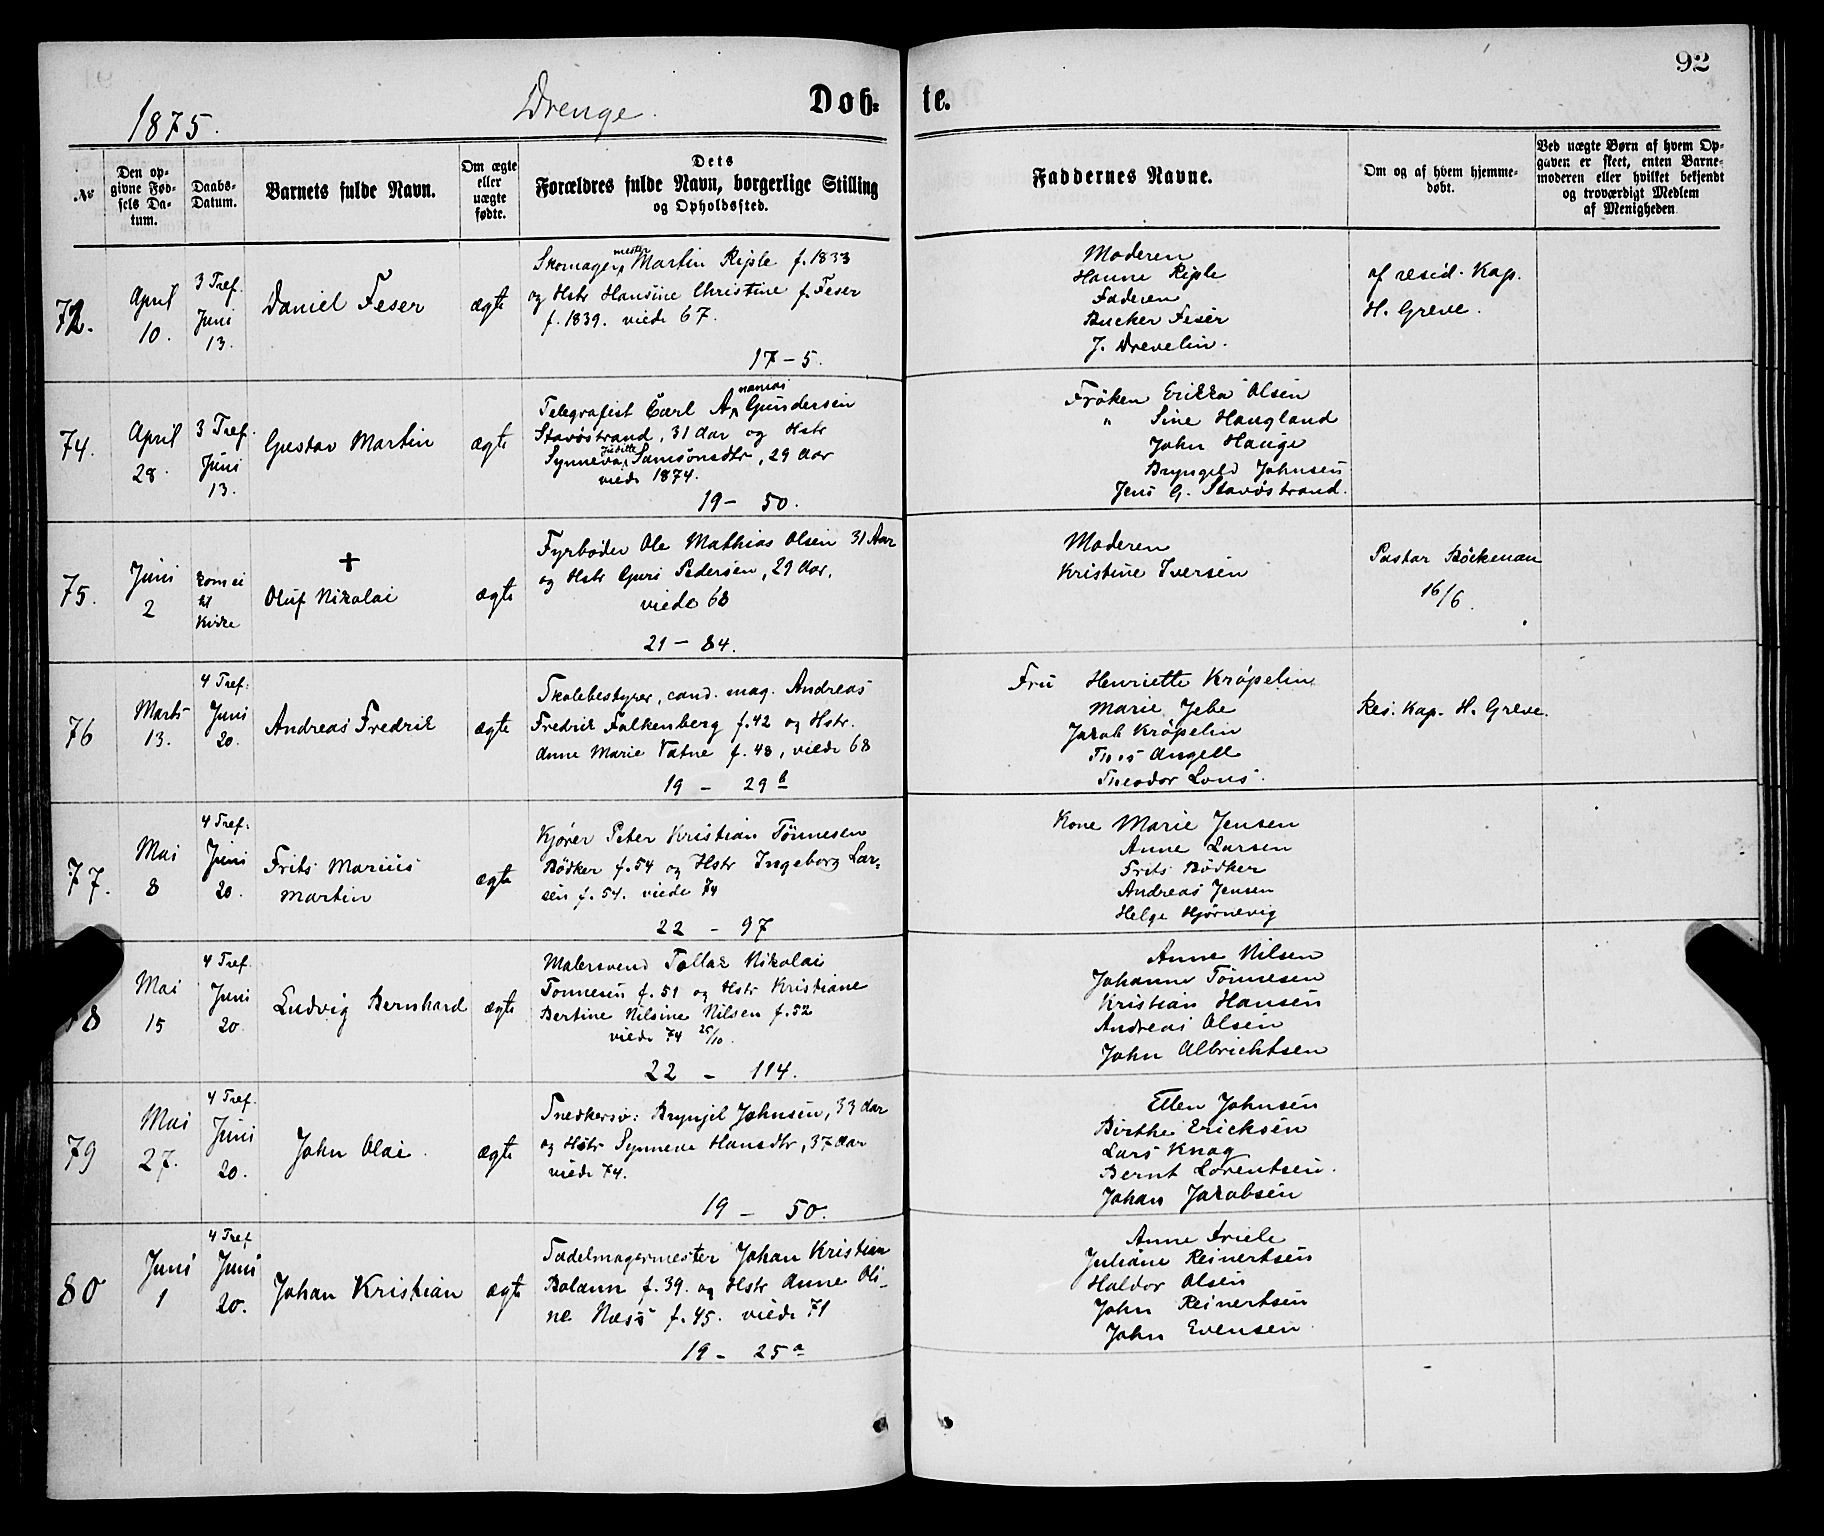 92
1875.
Drenge.
Døb-
te.
No
Den op-
givne Fød-
sels Da-
tum.
Daabs-
Datum.
Barnets fulde Navn.
Om ægte
eller
uægte
fødte.
Dets
Forældres fulde Navn, borgerlige Stilling
og Opholdssted.
Faddernes Navne.
Om og af hvem hjemme-
døbt.
Ved uægte Børn af hvem Op-
gaven er skeet, enten Barne-
moderen eller hvilket bekjendt
og troværdigt Medlem
af Menigheden
72.
April
10.
3 Tref.
Juni
13.
Daniel Feser
ægte
Skomagermester Martin Riple f. 1833
og Hstr Hansine Christine f. Feser
f. 1839. viede 67.
17 - 5.
Moderen
Hanne Riple
Faderen
Bucker Feser
J. Drevelin.
af resid. Kap.
H. Greve.
74.
April
28.
3 Tref.
Juni
13.
Gustav Martin
ægte
Telegrafist Carl Ananias Gundersen
Stavøstrand, 31 Aar og Hstr
Synneva Juditte Samsonsdtr, 29 Aar
viede 1874.
19 - 50.
Frøken Erikka Olsen
" Sine Haugland
John Hauge
Bryngeld Johnsen
Jens G. Stavøstrand.
75.
Juni
2
kom ei
til
Kirke
+
Oluf Nikolai
ægte
Fyrbøder Ole Mathias Olsen 31 Aar
og Hstr Guri Pedersen, 29 Aar,
viede 68
21 - 84.
Moderen
Kristine Iversen
Pastor Böckman
16/6.
76
Marts
13.
4 Tref:
Juni
20.
Andreas Fredrik
ægte
Skolebestyrer, cand. mag. Andreas
Fredrik Falkenberg f. 42 og Hstr.
Anne Marie Vatne f. 48, viede 68
19 - 29 b
Fru Henriette Krøpelin
Marie Jebe
Jacob Krøpelin
Ths Angell
Theodor Lons.
Res. Kap. H. Greve.
77.
Mai
8
4 Tref:
Juni
20.
Frits Marius
Martin
ægte
Kjører Peter Kristian Tönnesen
Bødker f. 54 og Hstr Ingeborg Lar-
sen f. 54. viede 74
22 - 97
Kone Marie Jensen
Anne Larsen
Frits Bødker
Andreas Jensen
Helge Hjørnevig
8
Mai
15
4 Tref.
Juni
20.
Ludvig Bernhard
ægte
Malersvend Tallak Nikolai
Tonnesen f. 51 og Hstr Kristiane
Bertine Nilsine Nilsen f. 52
viede 74 25/10.
22 - 114.
Anne Nilsen
Johanne Tönnesen
Kristian Hansen
Andreas Olsen
John Albrichtsen
79
Mai
27.
4 Tref.
Juni
20.
John Olai.
ægte
Snedkersv: Brynjel Johnsen, 33 Aar
og Hstr Synneve Hansdtr, 37 Aar
viede 74.
19 - 50.
Ellen Johnsen
Birthe Ericksen
Lars Knag
Bernt Lorentsen.
Johan Jacobsen
80
Juni
1
4 Tref
Juni
20.
Johan Kristian
ægte
Sadelmagermester Johan Kristian
Baldann f. 39. og Hstr Anne Oli-
ne Næss f. 45. viede 71
19 - 25 a
Anne Friele
Juliane Reinertsen
Haldor Olsen
John Reinertsen
John Evensen